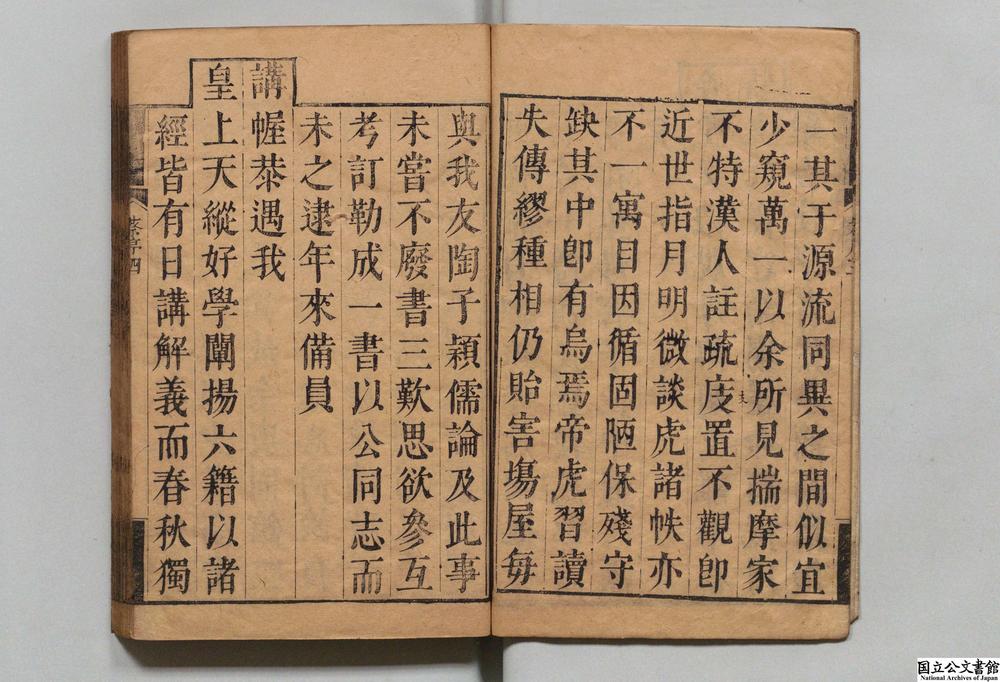 一其于源流同異之間似宜
少窺萬一以余所見揣摩家
不特漢人註疏庋置不觀卽
近世指月明微談虎諸帙亦
不一寓目因循固陋保殘守
缺其中卽有烏焉帝虎習讀
失傳繆種相仍貽害塲屋每
與我友陶子穎儒論及此事
未嘗不廢書三歎思欲參互
考訂勒成一書以公同志而
未之逮年來備員
講幄恭遇我
皇上天縱好學闡揚六籍以諸
經皆有日講解義而春秋獨
國立公文書館
National Archives of Japan